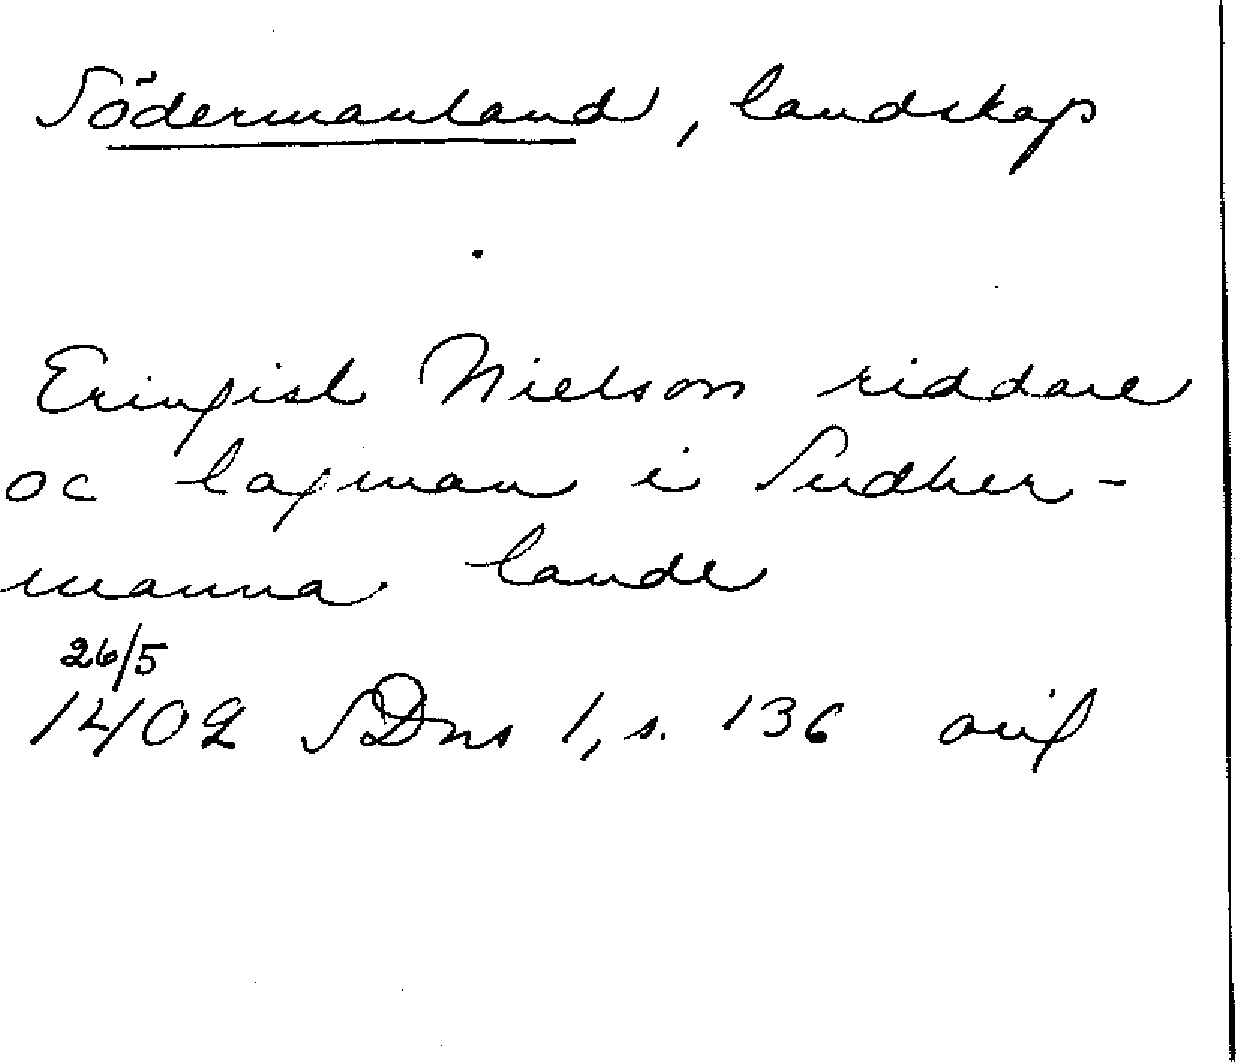 Södermanland, landskap
Eringisl Nielson riddare
oc lagman i Sudher-
manna lande
26/5
1402 SDns 1, s. 136 orig